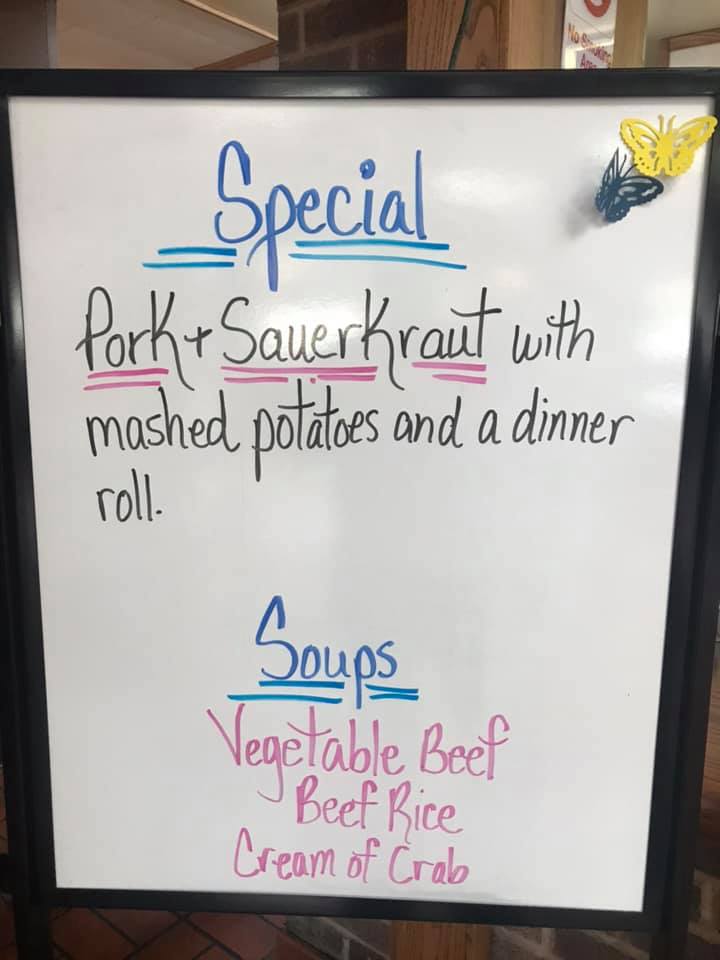 No Smoking
Area
Special
Pork + Sauerkraut with
mashed potatoes and a dinner
roll.
Soups
Vegetable Beef
Beef Rice
Cream of Crab